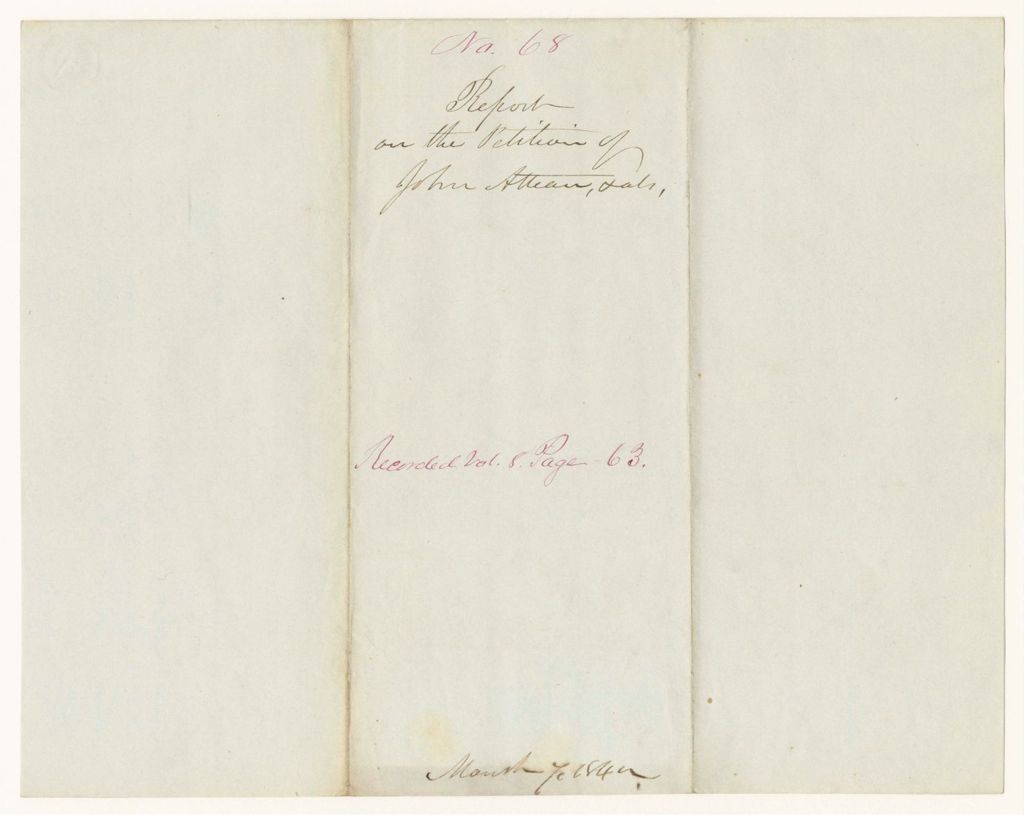 No. 68
Report
on the Petition of
John Attean, & als,
Recorded Vol. 8. Page 63.
March 7, 1840